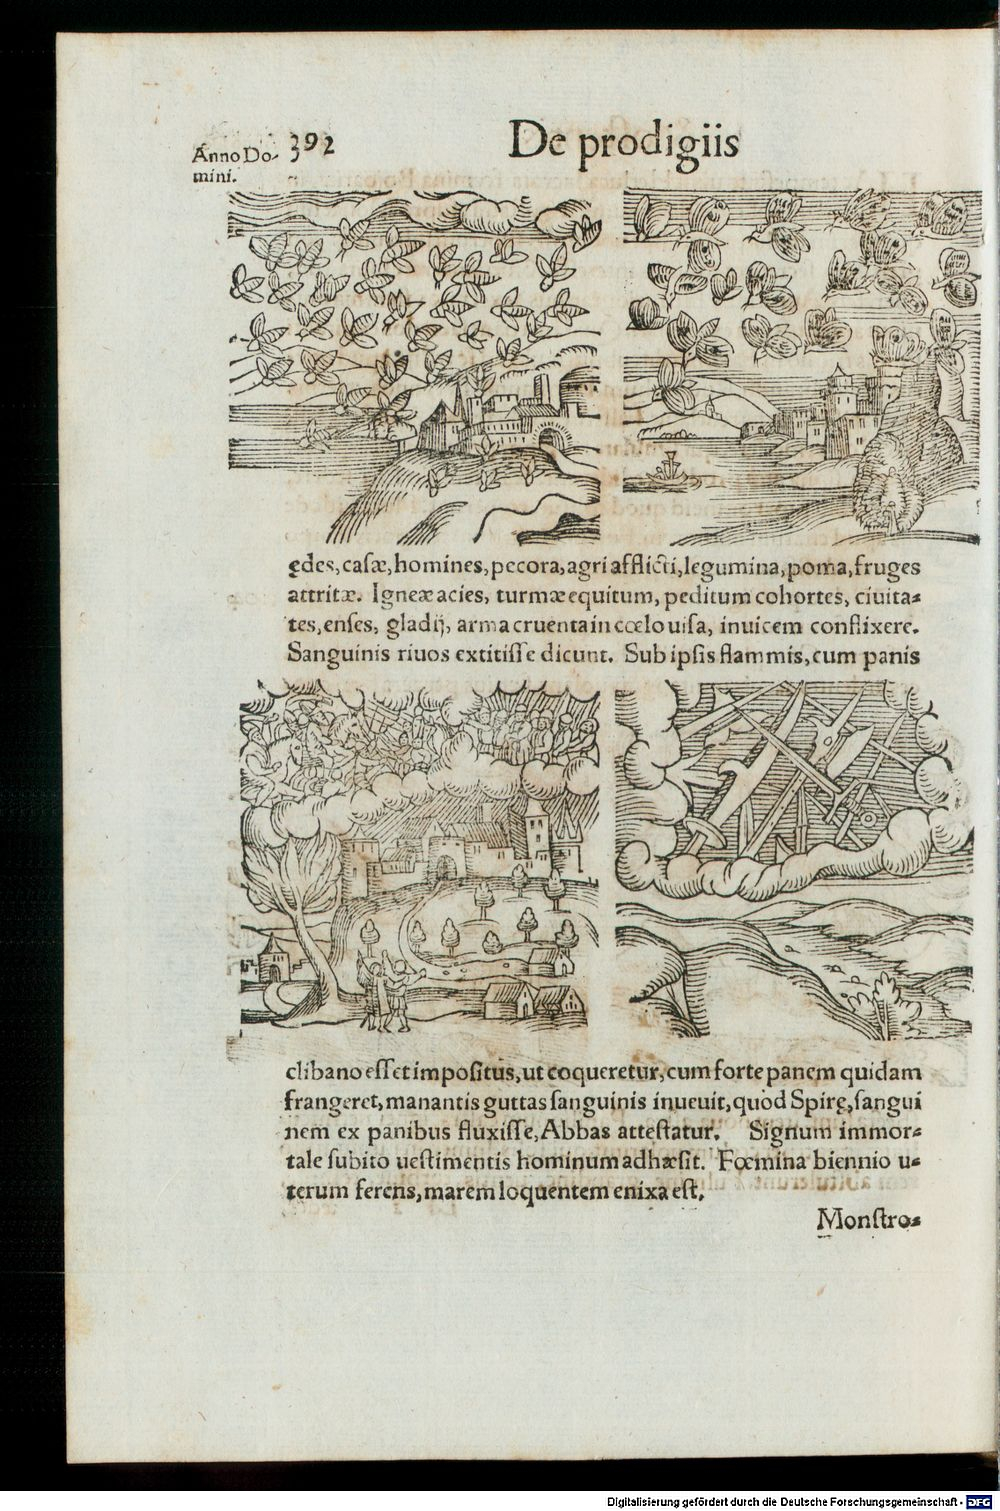 Anno Do-
mini.
392
De prodigiis
ędes, casæ, homines, pecora, agri afflicti, legumina, poma, fruges
attritæ. Igneæ acies, turmæ equitum, peditum cohortes, ciuita-
tes, enses, gladij, arma cruenta in cœlo uisa, inuicem conflixere.
Sanguinis riuos extitisse dicunt. Sub ipsis flammis, cum panis
clibano esset impositus, ut coqueretur, cum forte panem quidam
frangeret, manantis guttas sanguinis inueuit, quòd Spirę, sangui
nem ex panibus fluxisse, Abbas attestatur. Signum immor-
tale subito uestimentis hominum adhæsit. Fœmina biennio u-
terum ferens, marem loquentem enixa est.
Monstro-
Digitalisierung gefördert durch die Deutsche Forschungsgemeinschaft - DFG